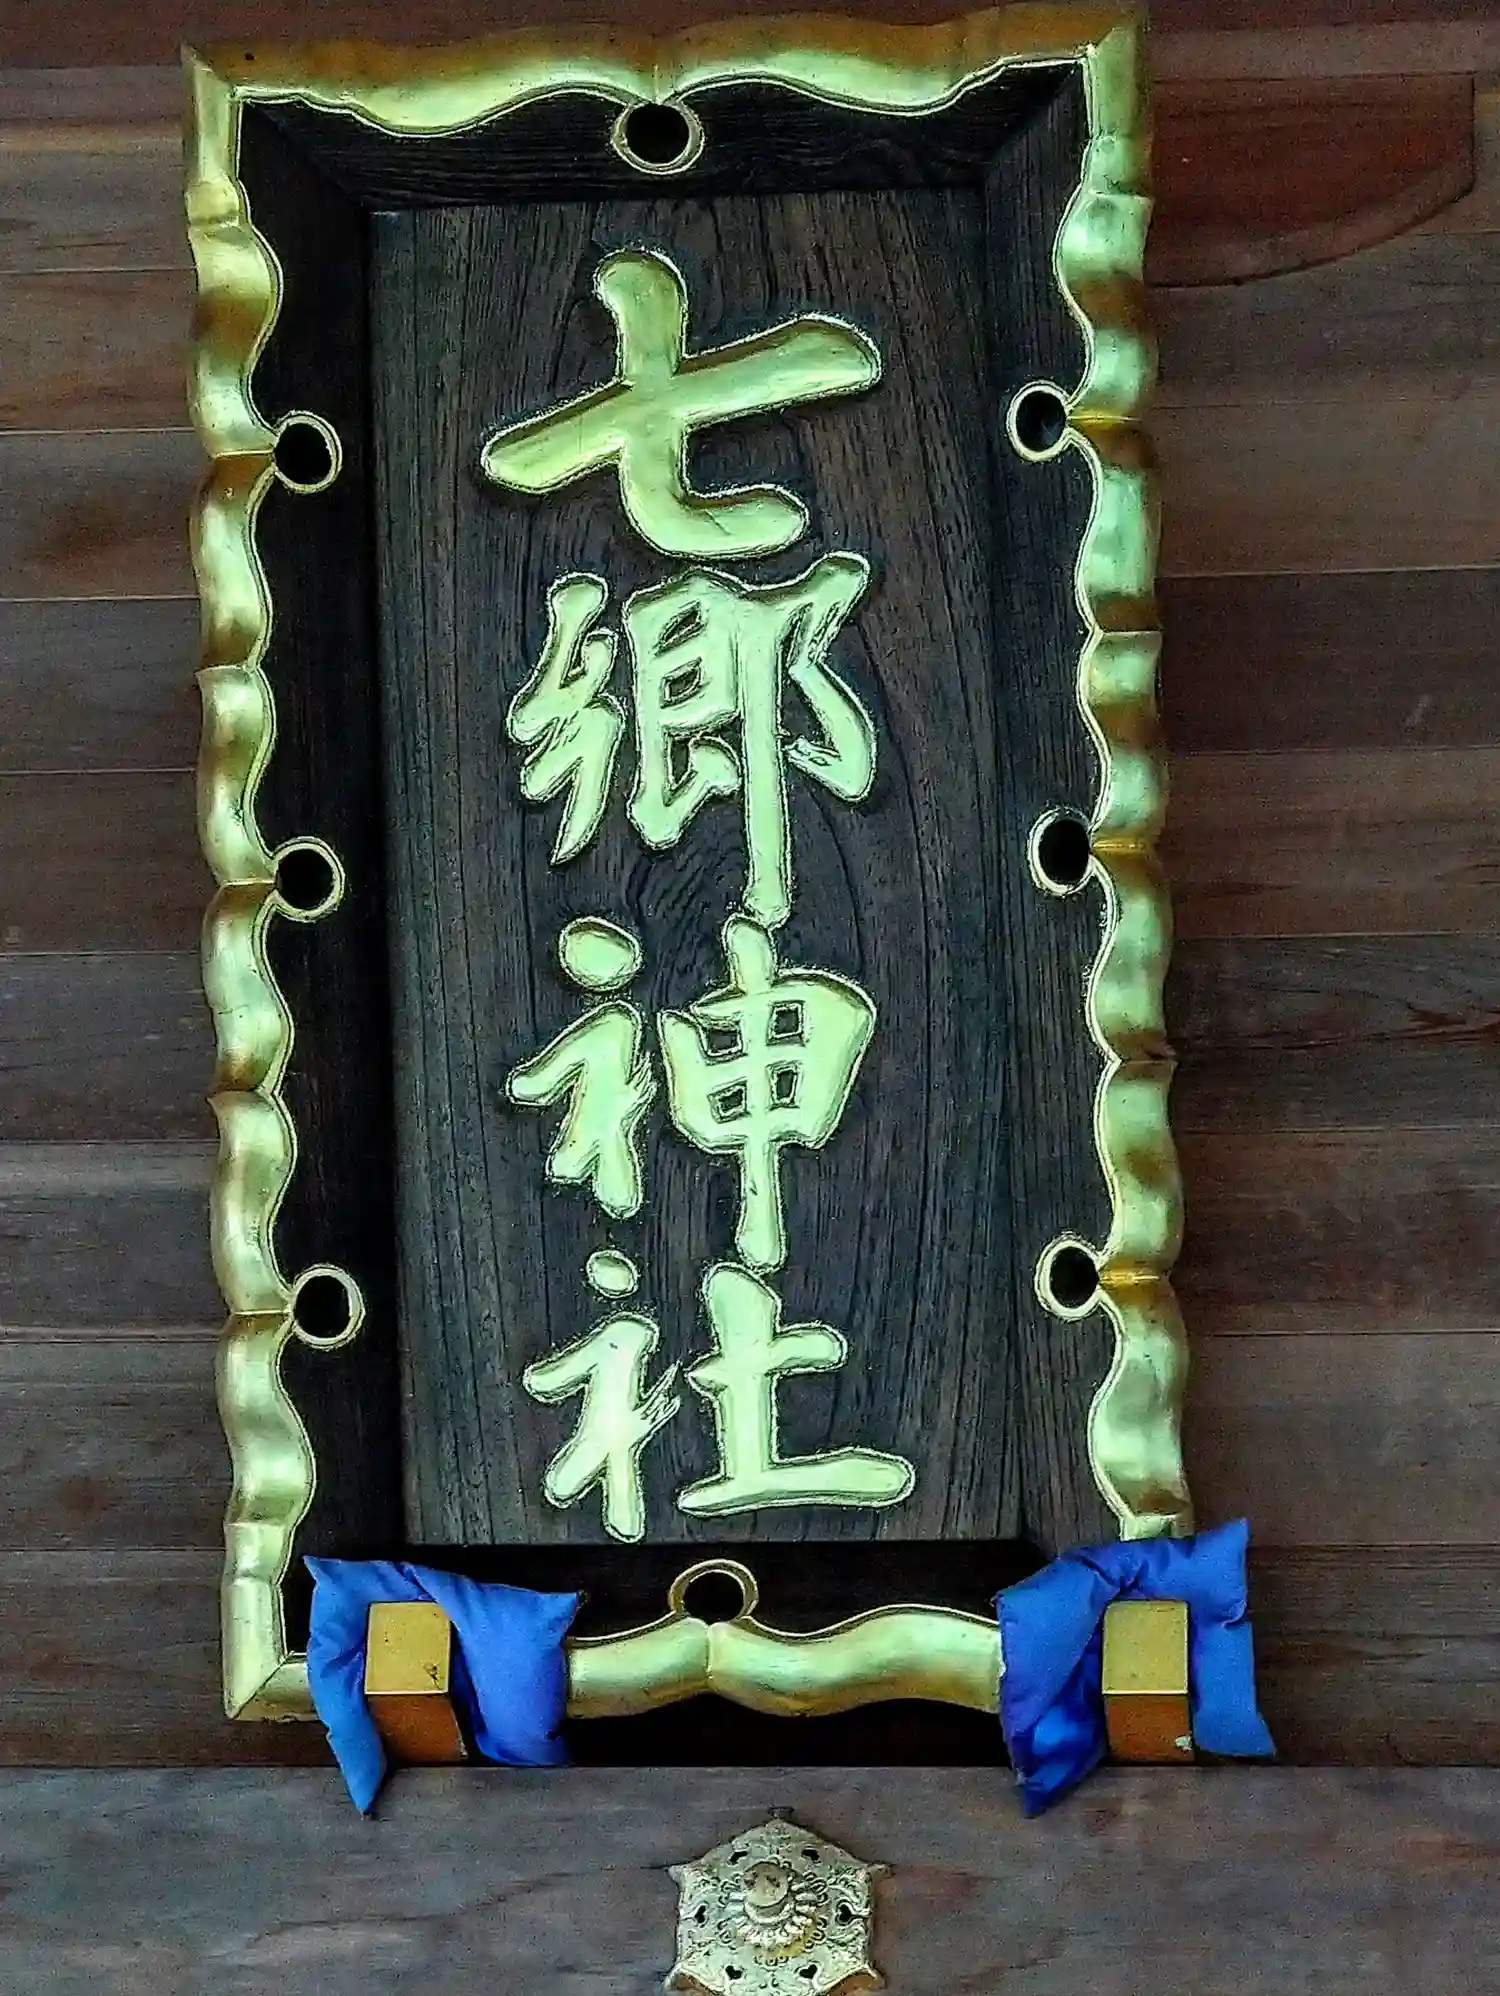 七郷神社